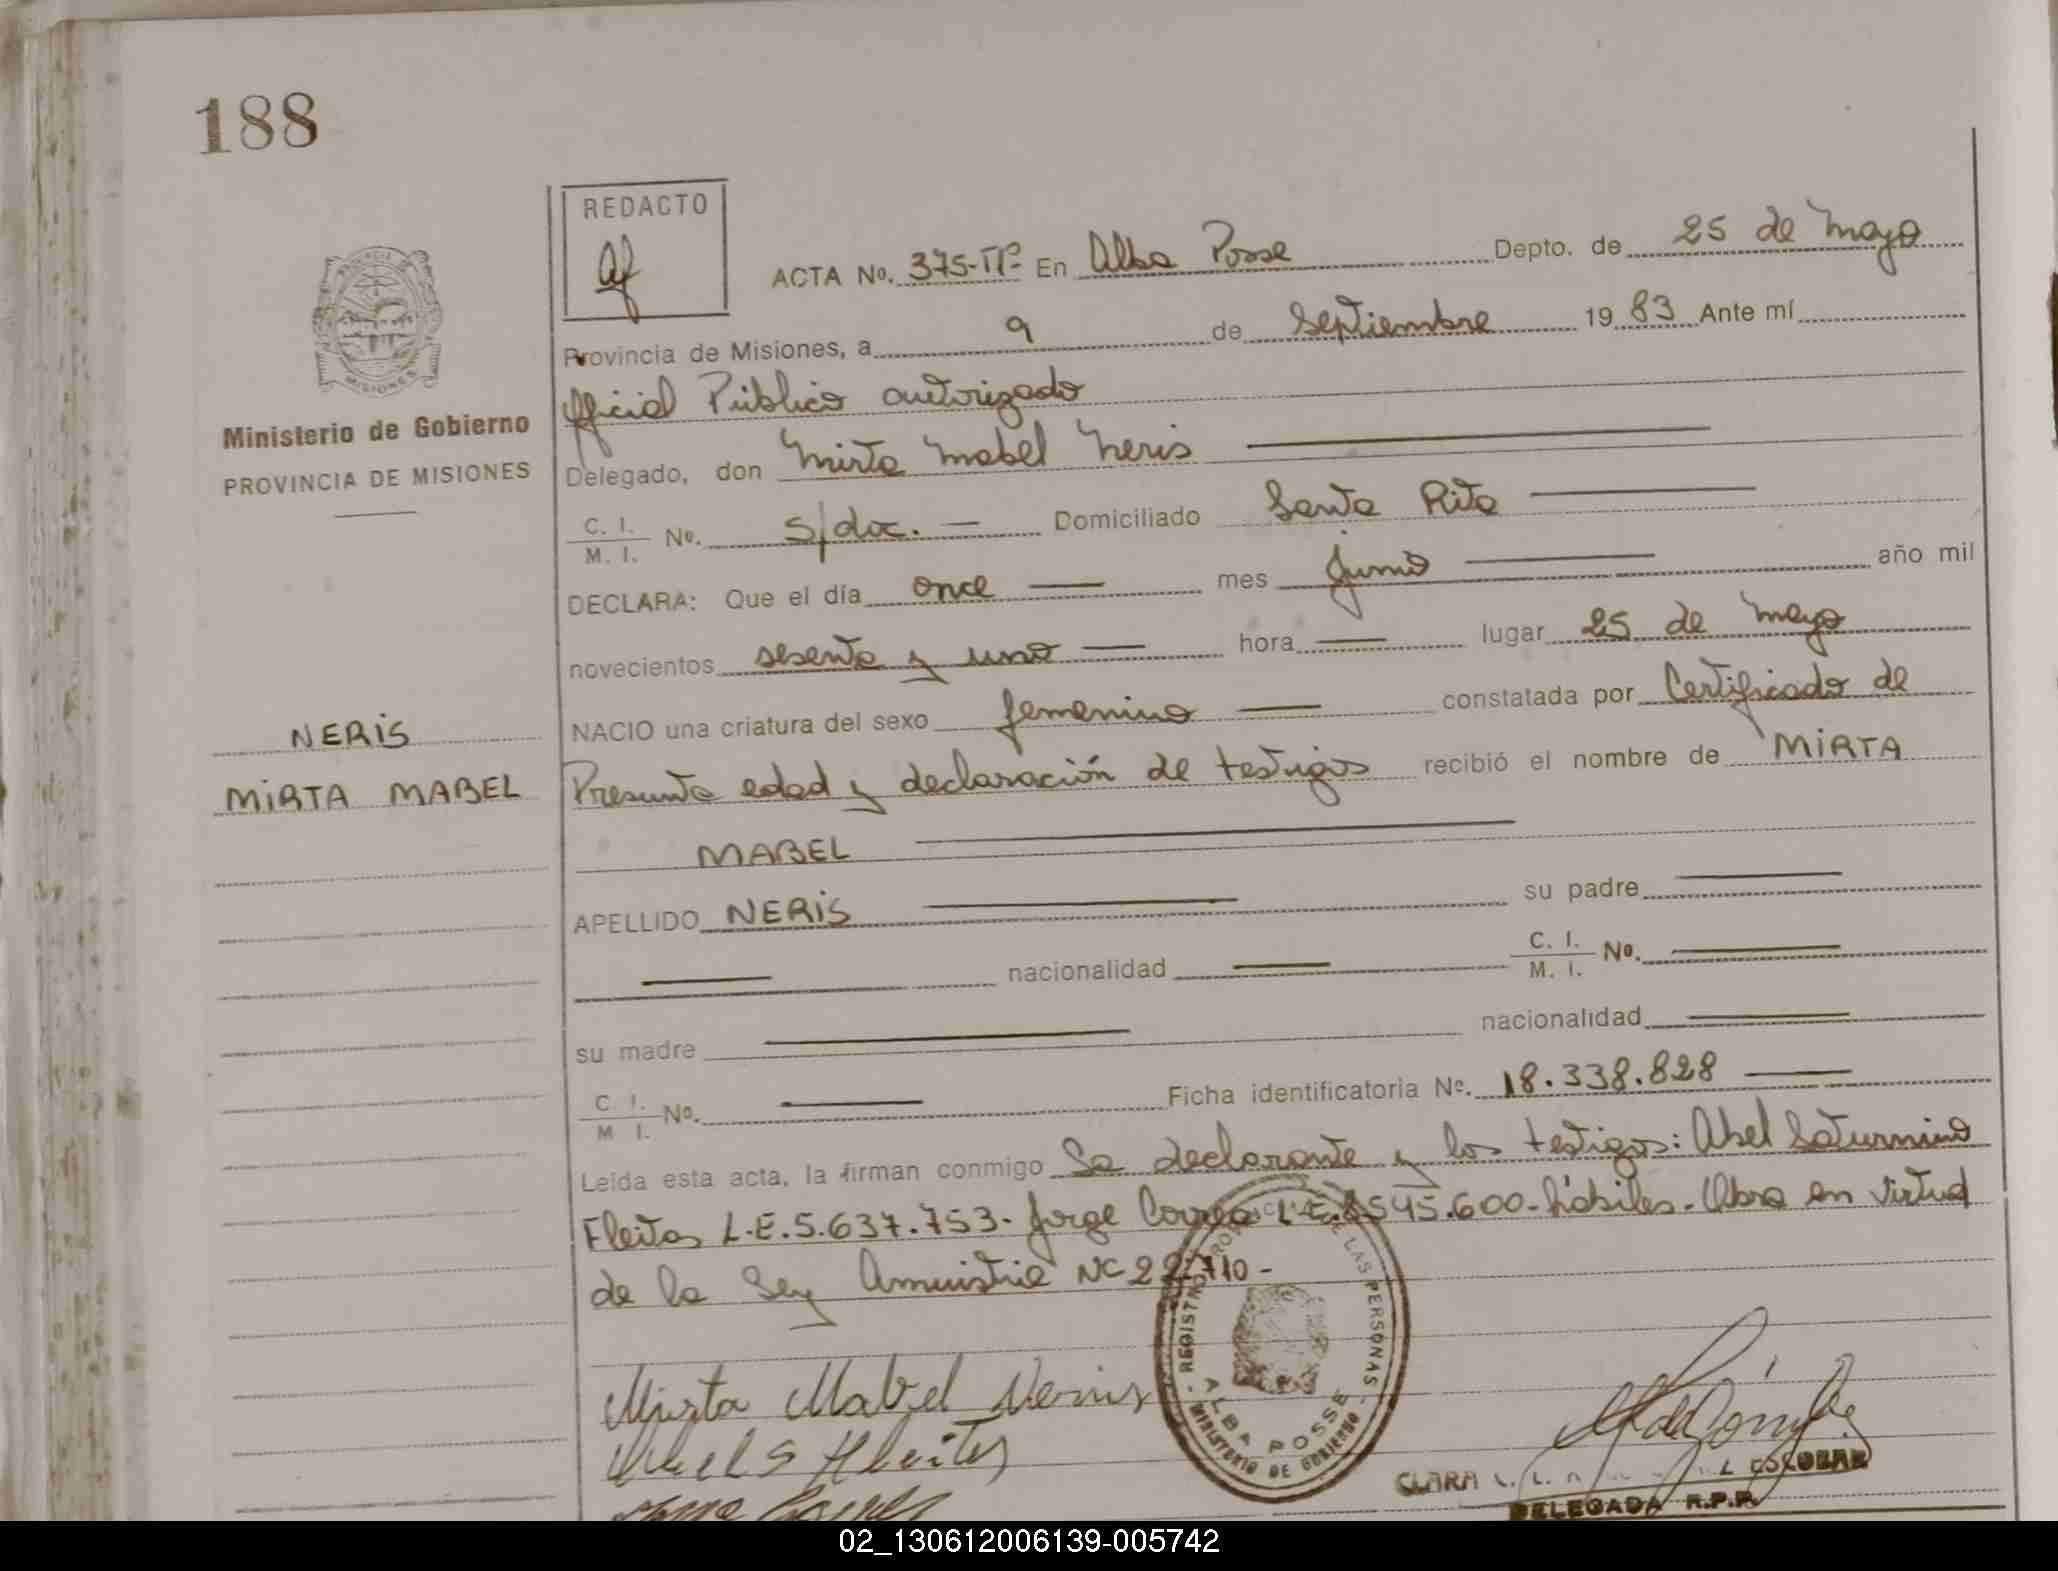 188
REDACTO
ACTA No. 375-Tº- En Alba Posse Depto. de 25 de Mayo
Provincia de Misiones, a 9 de Septiembre 1983 Ante mí
MISIONES
Oficial Público autorizado
Ministerio de Gobierno
PROVINCIA DE MISIONES
Delegado, don Mirta Mabel Neris
C. I. / M. I. No. s/doc. — Domiciliado Santa Rita
DECLARA: Que el día once — mes junio — año mil
novecientos sesenta y uno — hora — lugar 25 de Mayo
NACIO una criatura del sexo femenino — constatada por Certificado de
NERIS
MIRTA MABEL
Presunta edad y declaración de testigos recibió el nombre de MIRTA
MABEL
APELLIDO NERIS — su padre —
— nacionalidad — C. I. / M. I. No. —
su madre — nacionalidad —
C. I. / M. I. No. — Ficha identificatoria No. 18.338.828 —
Leída esta acta, la firman conmigo La declarante y los testigos: Abel Saturnino
Fleitas L.E.5.637.753- Jorge Correa L.E. 545.600- hábiles.- Obra en virtud
de la Ley Amnistia Nº 22.710-
REGISTRO DE LAS PERSONAS
ALBA POSSE
MINISTERIO DE GOBIERNO
Mirta Mabel Neris
Abel S Fleitas
Jorge Correa
CLARA ESCOBAR
DELEGADA R.P.P.
02_130612006139-005742